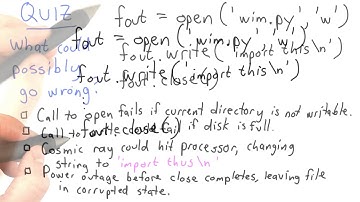 QUIZ
What could
possibly
go wrong.
fout = open('wim.py', 'w')
fout = open('wim.py', 'w')
fout.write('import this\n')
fout.write('import this\n')
fout.close()
Call to open fails if current directory is not writable.
Call to fout.close() fail if disk is full.
Cosmic ray could hit processor, changing
string to 'import thus\n'
Power outage before close completes, leaving file
in corrupted state.